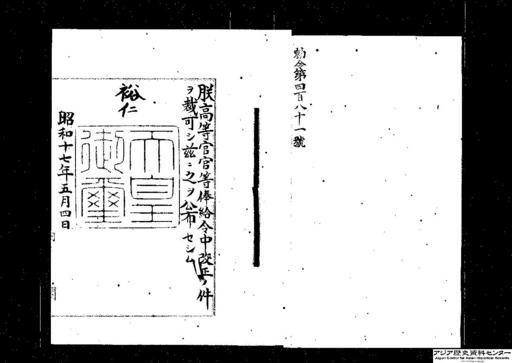 勅令第四百八十一號
朕高等官官等俸給令中改正ノ件
ヲ裁可シ茲ニ之ヲ公布セシム
裕仁
天皇御璽
昭和十七年五月四日
アジア歴史資料センター
Japan Center for Asian Historical Records